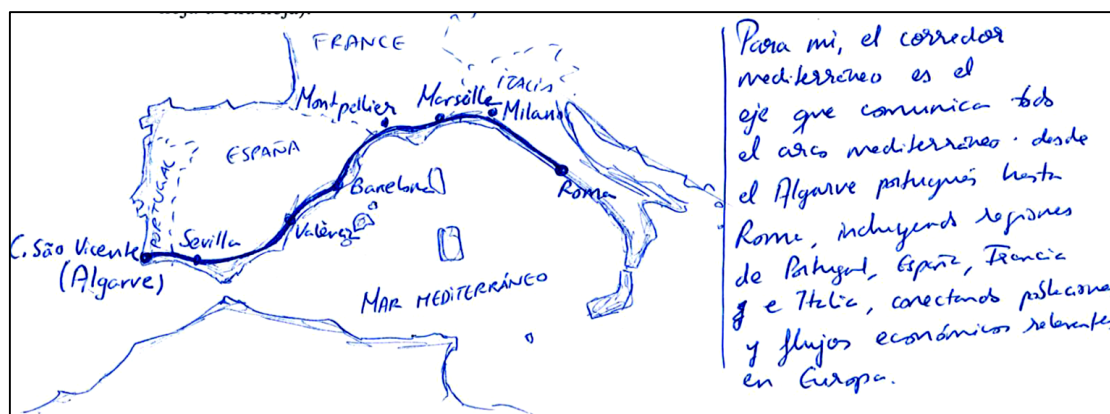 FRANCE
ITALIA
Montpellier
Marsella
Milano
ESPAÑA
PORTUGAL
Barcelona
Roma
Valencia
C. São Vicente
(Algarve)
Sevilla
MAR MEDITERRÁNEO
Para mi, el corredor
mediterráneo es el
eje que comunica todo
el arco mediterráneo. desde
el Algarve portugués hasta
Roma, incluyendo regiones
de Portugal, España, Francia
e Italia, conectando poblaciones
y flujos económicos relevantes
en Europa.